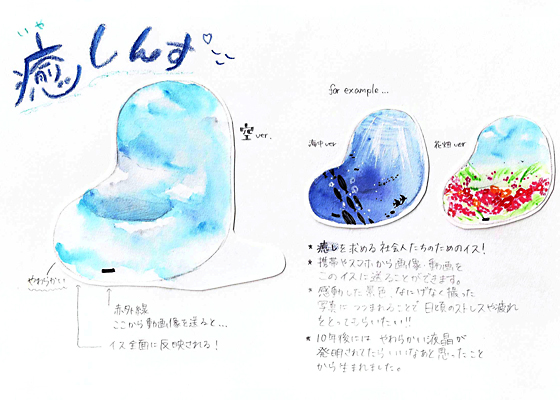 いや
癒しんす
空 ver.
やわらかい
赤外線
ここから動画像を送ると...
イス全面に反映される!
for example...
海中 ver
花畑 ver
* 癒しを求める社会人たちのためのイス!
* 携帯やスマホから画像・動画を
このイスに送ることができます。
* 感動した景色、なにげなく撮った
写真につつまれることで日頃のストレスや疲れ
をとってもらいたい!!
* 10年後には やわらかい液晶が
発明されてたらいいなぁと思ったこと
から生まれました。